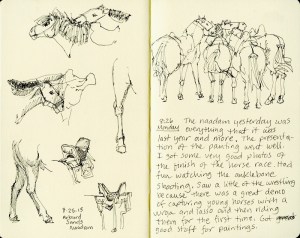 8-25-15
Naadam
8:26
Monday
The naadam yesterday was
everything that it was
last year and more. The present-
ation of the painting went well.
I got some very good photos of
the finish of the horse race. Had
fun watching the anklebone
shooting. Saw a little of the wrestling
because there was a great demo
of capturing young horses with a
urga and lasso and then riding
them for the first time. Got
good stuff for paintings.